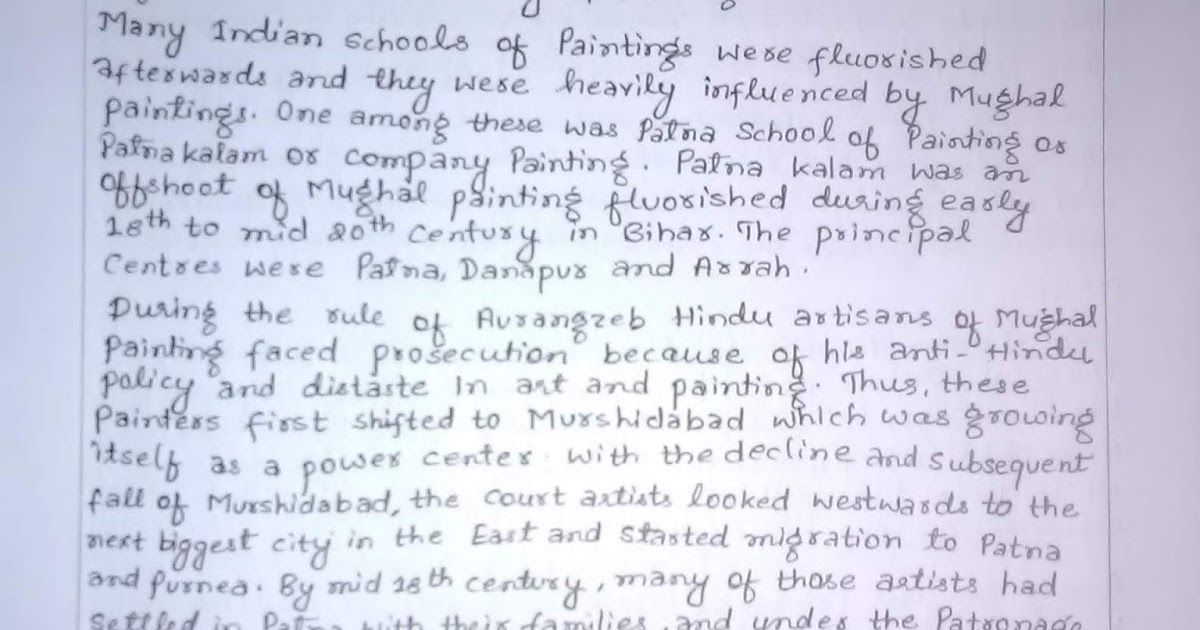 Many Indian schools of Paintings were fluorished
afterwards and they were heavily influenced by Mughal
paintings. One among these was Patna School of Painting or
Patna kalam or company Painting. Patna kalam was an
offshoot of Mughal painting fluorished during early
18th to mid 20th Century in Bihar. The principal
Centres were Patna, Danapur and Arrah.
During the rule of Aurangzeb Hindu artisans of Mughal
Painting faced prosecution because of his anti-Hindu
policy and distaste In art and painting. Thus, these
Painters first shifted to Murshidabad which was growing
itself as a power center. with the decline and subsequent
fall of Murshidabad, the court artists looked westwards to the
next biggest city in the East and started migration to Patna
and Purnea. By mid 18th century, many of those artists had
settled in Patna with their families, and under the Patronage